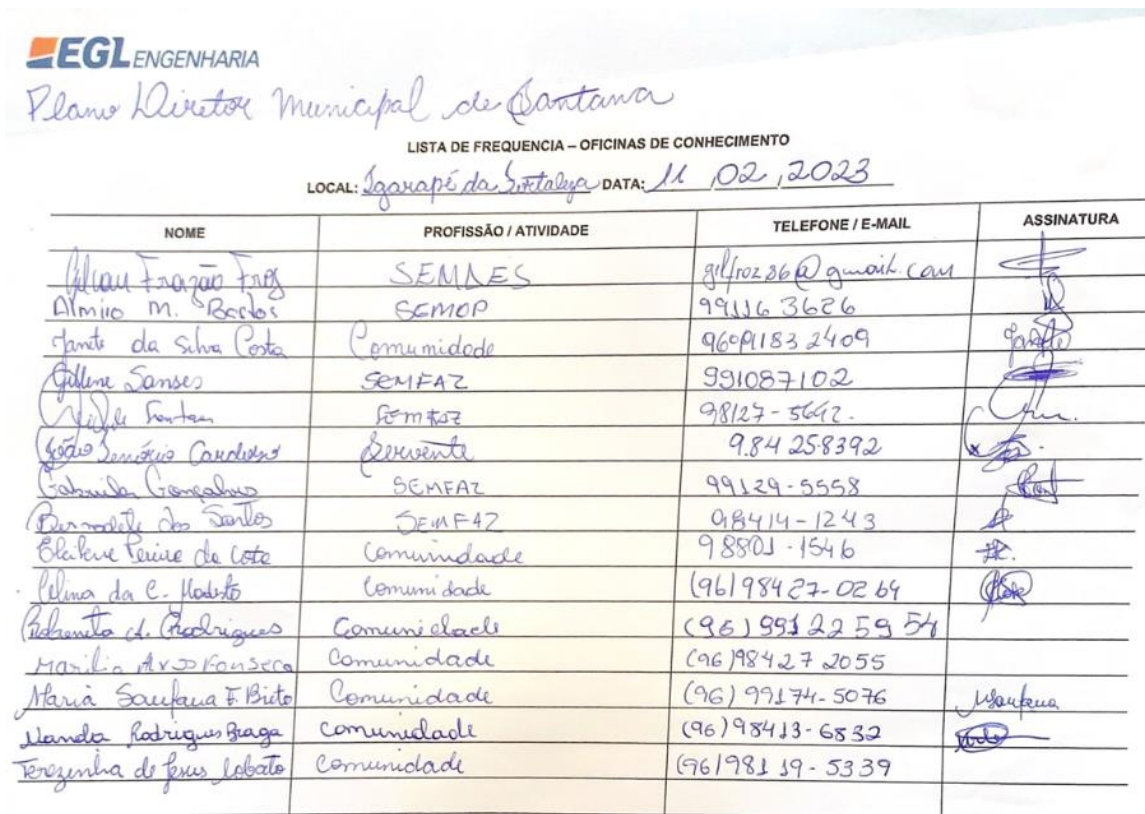 EGL ENGENHARIA
Plano Diretor Municipal de Santana
LISTA DE FREQUENCIA – OFICINAS DE CONHECIMENTO
LOCAL: Igarapé da Fortaleza DATA: 11 , 02 , 2023
NOME PROFISSÃO / ATIVIDADE TELEFONE / E-MAIL ASSINATURA
Frazão SEMDES gilfroz86@gmail.com
Almiro M. SEMOP 99116 3626
da Silva Costa Comunidade
Sanses SEMFAZ 991087102
SEMFAZ 98127-5642.
João Cardoso Servente 9.84 25-8392
Gabriela Gonçalves SEMFAZ 99129-5558
Bernadete dos Santos SEMFAZ 98414-1243
Comunidade 98801-1546
Celina da C. Modesto Comunidade (96)98427-0264
Rodrigues Comunidade (96) 991 22 59 54
Marilia Fonseca Comunidade (96)98427 2055
Maria Santana F. Brito Comunidade (96) 99174-5076 Msantana
Rodrigues Braga Comunidade (96)98413-6832
Terezinha de Jesus Lobato Comunidade (96)981 19-5339